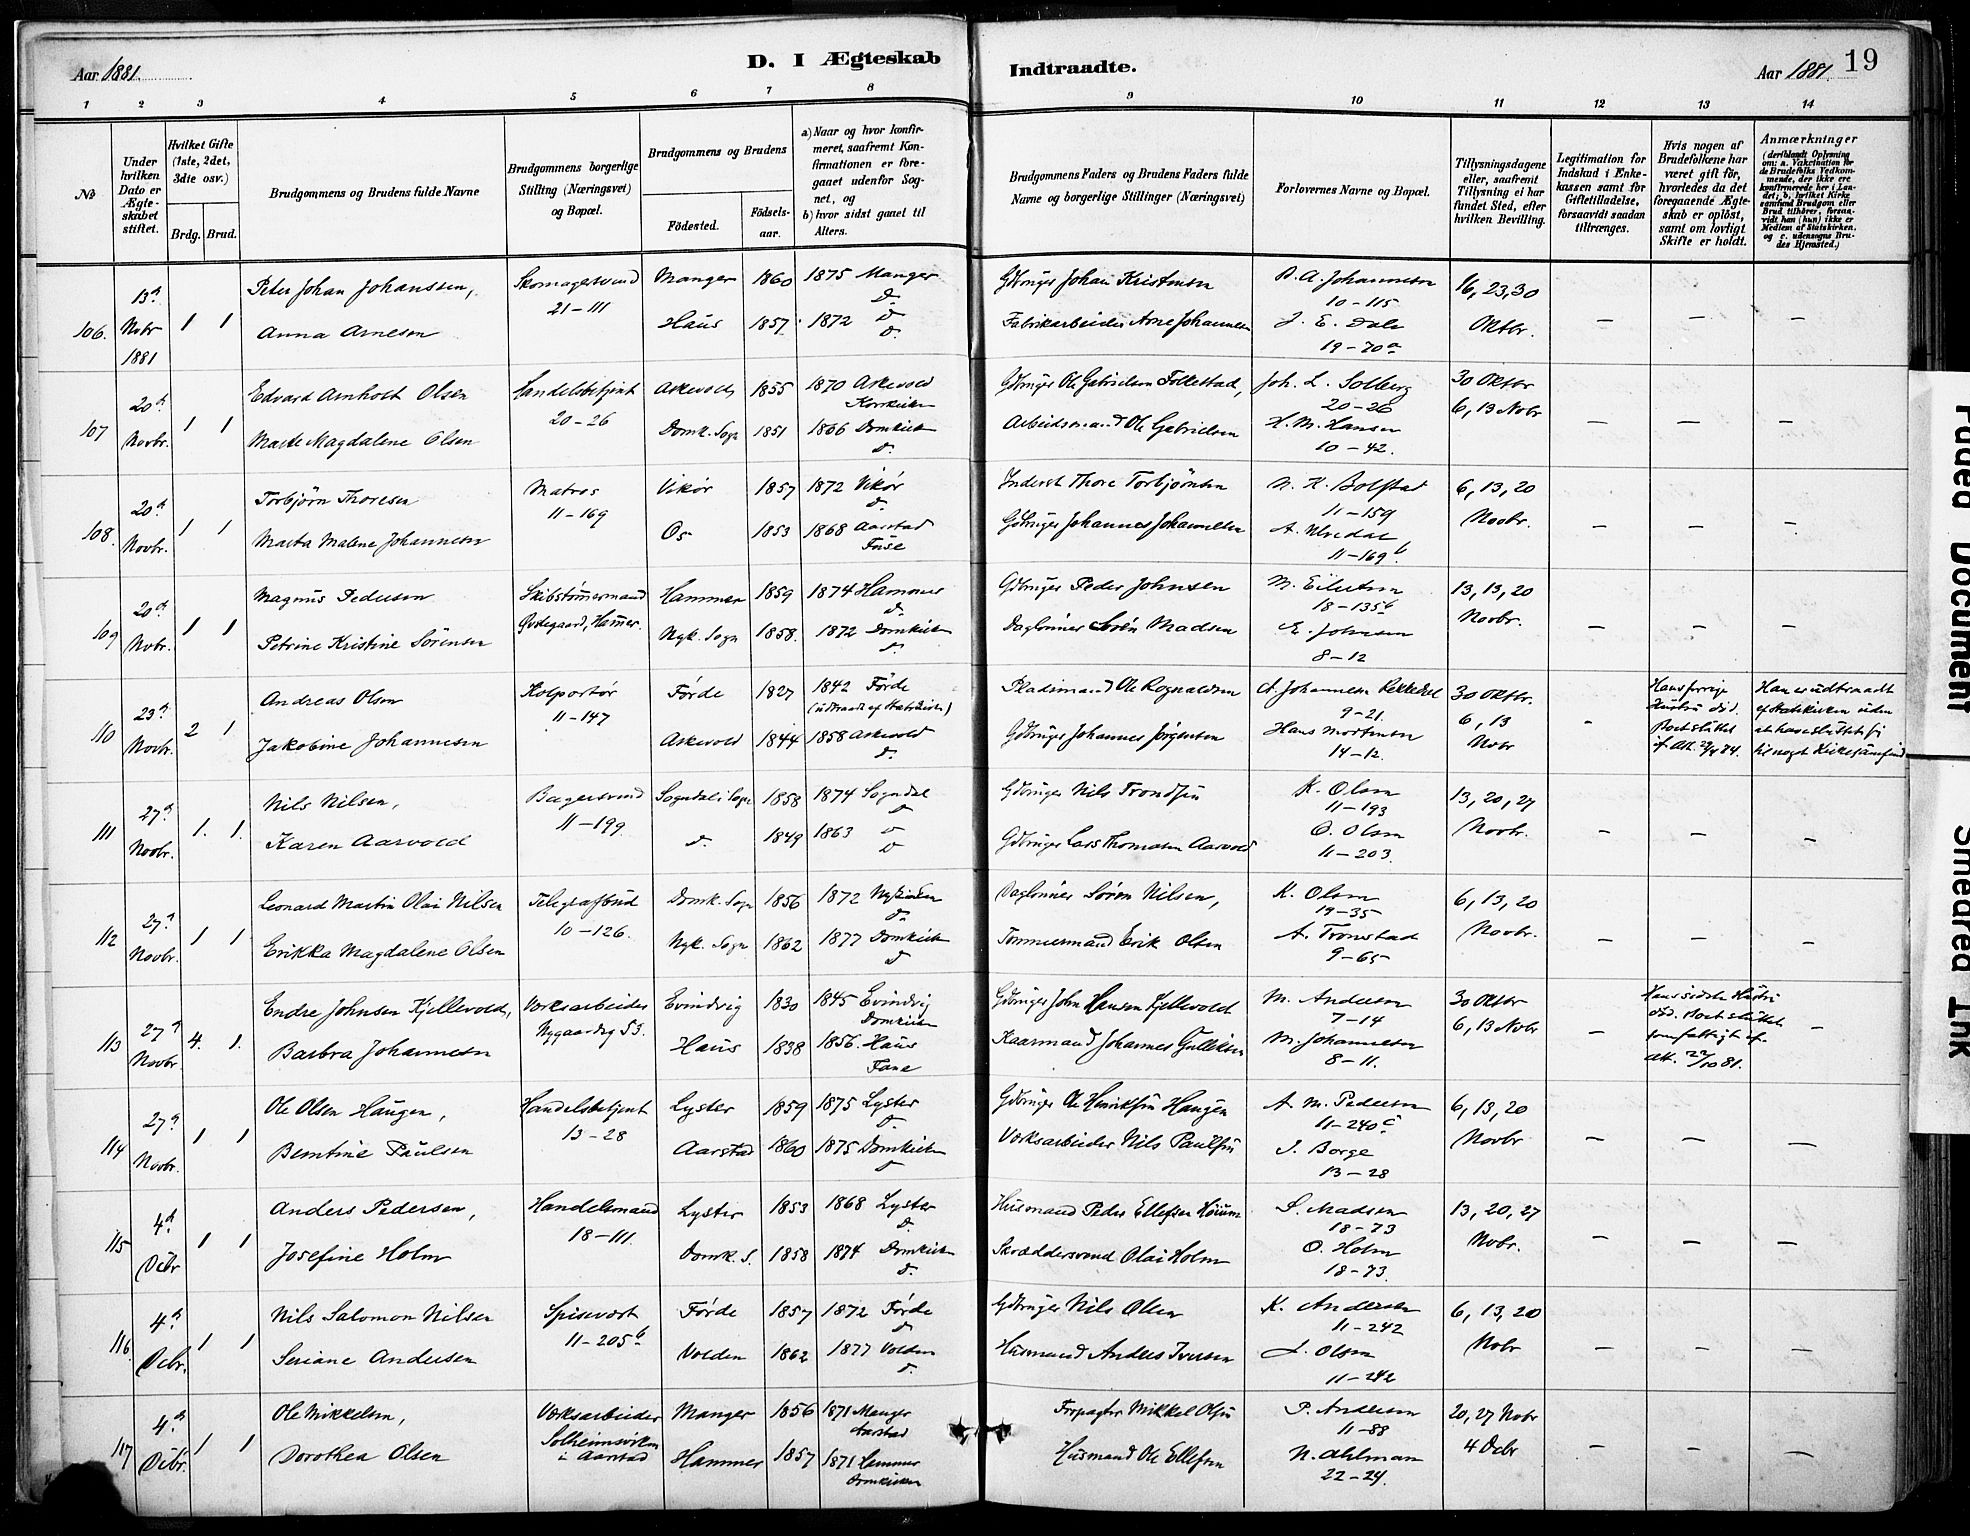 Aar 1881.
D. I Ægteskab
Indtraadte.
Aar 1881.
19
1 2 3 4 5 6 7 8 9 10 11 12 13 14
No
Under hvilken Dato er Ægteskabet stiftet.
Hvilket Gifte (1ste, 2det, 3die osv.)
Brdg. Brud.
Brudgommens og Brudens fulde Navne
Brudgommens borgerlige Stilling (Næringsvei) og Bopæl.
Brudgommens og Brudens
Födested.
Födselsaar.
a) Naar og hvor konfirmeret, saafremt Konfirmationen er foregaaet udenfor Sognet, og
b) hvor sidst gaaet til Alters.
Brudgommens Faders og Brudens Faders fulde Navne og borgerlige Stillinger (Næringsvei)
Forlovernes Navne og Bopæl.
Tillysningsdagene eller, saafremt Tillysning ei har fundet Sted, efter hvilken Bevilling.
Legitimation for Indskud i Enkekassen samt for Giftetilladelse, forsaavidt saadan tiltrænges.
Hvis nogen af Brudefolkene har været gift før, hvorledes da det foregaaende Ægteskab er oplöst, samt om lovligt Skifte er holdt.
Anmærkninger
(deriblandt Oplysning om: a. Vakcination for de Brudefolks Vedkommende, der ikke ere konfirmerede her i Landet; b. hvilket Kirkesamfund Brudgom eller Brud tilhörer, forsaavidt han (hun) ikke er Medlem af Statskirken, og c. udensogns Brudes Hjemsted.)
106. 13d Novbr 1881 1 1
Peter Johan Johanssen, Skomagersvend 21-111 Manger 1860 1875 Manger d. Gdbruger Johan Kristensen B. A. Johannesen 10-115 16, 23, 30 Oktbr.
Anna Arnesen Haus 1857 1872 d d. Fabrikarbeider Arne Johannesen J. E. Dale 19-70a
107 20d Novbr. 1 1
Edvard Arnholt Olsen Handelsbetjent 20-26 Askevold 1855 1870 Askevold Korskirken Gdbruger Ole Gabrielsen Folkestad, Joh. L. Solberg 20-26 30 Oktbr 6, 13 Novbr
Marte Magdalene Olsen Domk. Sogn 1851 1866 Domkirken d. Arbeidsmand Ole Gabrielsen H. M. Hansen 10-42.
108. 20d Novbr. 1 1
Torbjørn Thoresen Matros 11-169 Vikør 1857 1872 Vikør d. Inderst Thore Torbjørnsen N. K. Bolstad 11-159 6, 13, 20 Novbr.
Marta Malene Johannesen Os 1853 1868 Aarstad Fuse Gdbruger Johannes Johannesen A. Ulvedal 11-169b
109 20d Novbr. 1 1
Magnus Pedersen Skibstømmermand Hammer 1859 1874 Hammer d. Gdbruger Peder Johnsen M. Eilertsen 18-135b 13, 13, 20 Novbr.
Petrine Kristine Sørensen Nyk. Sogn 1858. 1872 Domkirken d. Daglønner Sørén Madsen E. Johnsen 8-12
110 23d Novbr. 2 1
Andreas Olsen Kolportør 11-147 Førde 1827 1842 Førde (udtraadt af Statskirken) Pladsmand Ole Rognaldsen A. Johannesen Rekkedal 9-21. 30 Oktbr. 6, 13 Nobr Hans forrige Hustru død. Boet sluttet Han er udtraadt af Statskirken uden at have sluttet sig til noget Kirkesamfund
Jakobine Johannesen Askevold 1844 1858 Askevold d. Gdbruger Johannes Jørgensen Hans Mortensen 14-12.
111 27d Novbr. 1. 1.
Nils Nilsen, Bagersvend 11-199 Sogndal i Sogn 1858 1874 Sogndal d Gdbruger Nils Trondsen K. Olsen 11-193 13, 20, 27 Novbr.
Karen Aarvold d. 1849 1863 d d Gdbruger Lars Thomasen Aarvold O. Olsen 11-203.
112 27d Novbr. 1 1
Leonard Martin Olai Nilsen Telegrafbud 10-126. Domk. Sogn 1856 1872 Nykirken d. Daglønner Søren Nilsen, K. Olsen 19-35 6, 13, 20 Novbr.
Erikka Magdalene Olsen Nyk. Sogn 1862 1877 Domkirken d Tømmermand Erik Olsen A. Tronstad 9-65
113 27d Novbr 4. 1.
Endre Johnsen Kjellevold, Værksarbeider Nygaardsg 53. Evindvig 1830 1845 Evindvig Domkirken Gdbruger John Hansen Kjellevold M. Andersen 7-14 30 Oktbr 6, 13 Novbr Hans sidste Hustru død. Boet sluttet 22/10 81.
Barbra Johannesen Haus 1838 1856. Haus Fane Kaarmand Johannes Gulleksen M. Johannesen 8-11.
114 27d Novbr. 1 1
Ole Olsen Haugen, Handelsbetjent 13-28 Lyster 1859 1875 Lyster d Gdbruger Ole Henriksen Haugen A. M. Pedersen 11-240c 6, 13, 20 Novbr
Berntine Paulsen Aarstad 1860 1875 Domkirken d Værksarbeider Nils Paulsen J. Borge 13-28
115 4d Dcbr 1 1
Anders Pedersen, Handelsmand 18-111. Lyster 1853 1868 Lyster d. Husmand Peder Ellefsen S. Madsen 18-73 13, 20, 27 Nobr.
Josefine Holm Domk. S. 1858 1874 Domkirken d. Skræddersvend Olai Holm O. Holm 18-73.
116 4d Dcbr. 1 1
Nils Salomon Nilsen Spisevært 11-205b Førde 1857 1872 Førde d Gdbruger Nils Olsen K. Andersen 11-242 6, 13, 20 Nobr
Seriane Andersen Volden 1862 1877 Volden d. Husmand Anders Iversen J. Olsen 11-242
117 4d Dcbr. 1 1
Ole Mikkelsen, Værksarbeider Solheimsviken i Aarstad Manger 1856 1871 Manger Aarstad Forpagter Mikkel Olsen P. Andersen 11-88 20, 27 Nobr 4 Dcbr
Dorothea Olsen Hammer 1857 1871 Hammer Domkirken Husmand Ole Ellefsen N. Ahlman 22-24.
Faded Document
Smeared Ink